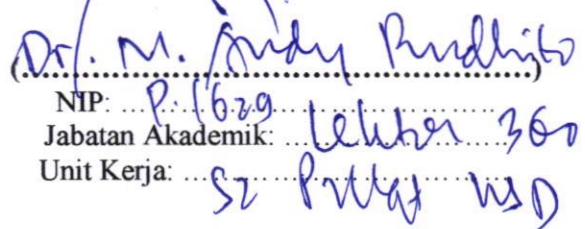 (Dr. M. Andy Rudhito)
NIP: P. 1629
Jabatan Akademik: Lektor 360
Unit Kerja: S2 USD